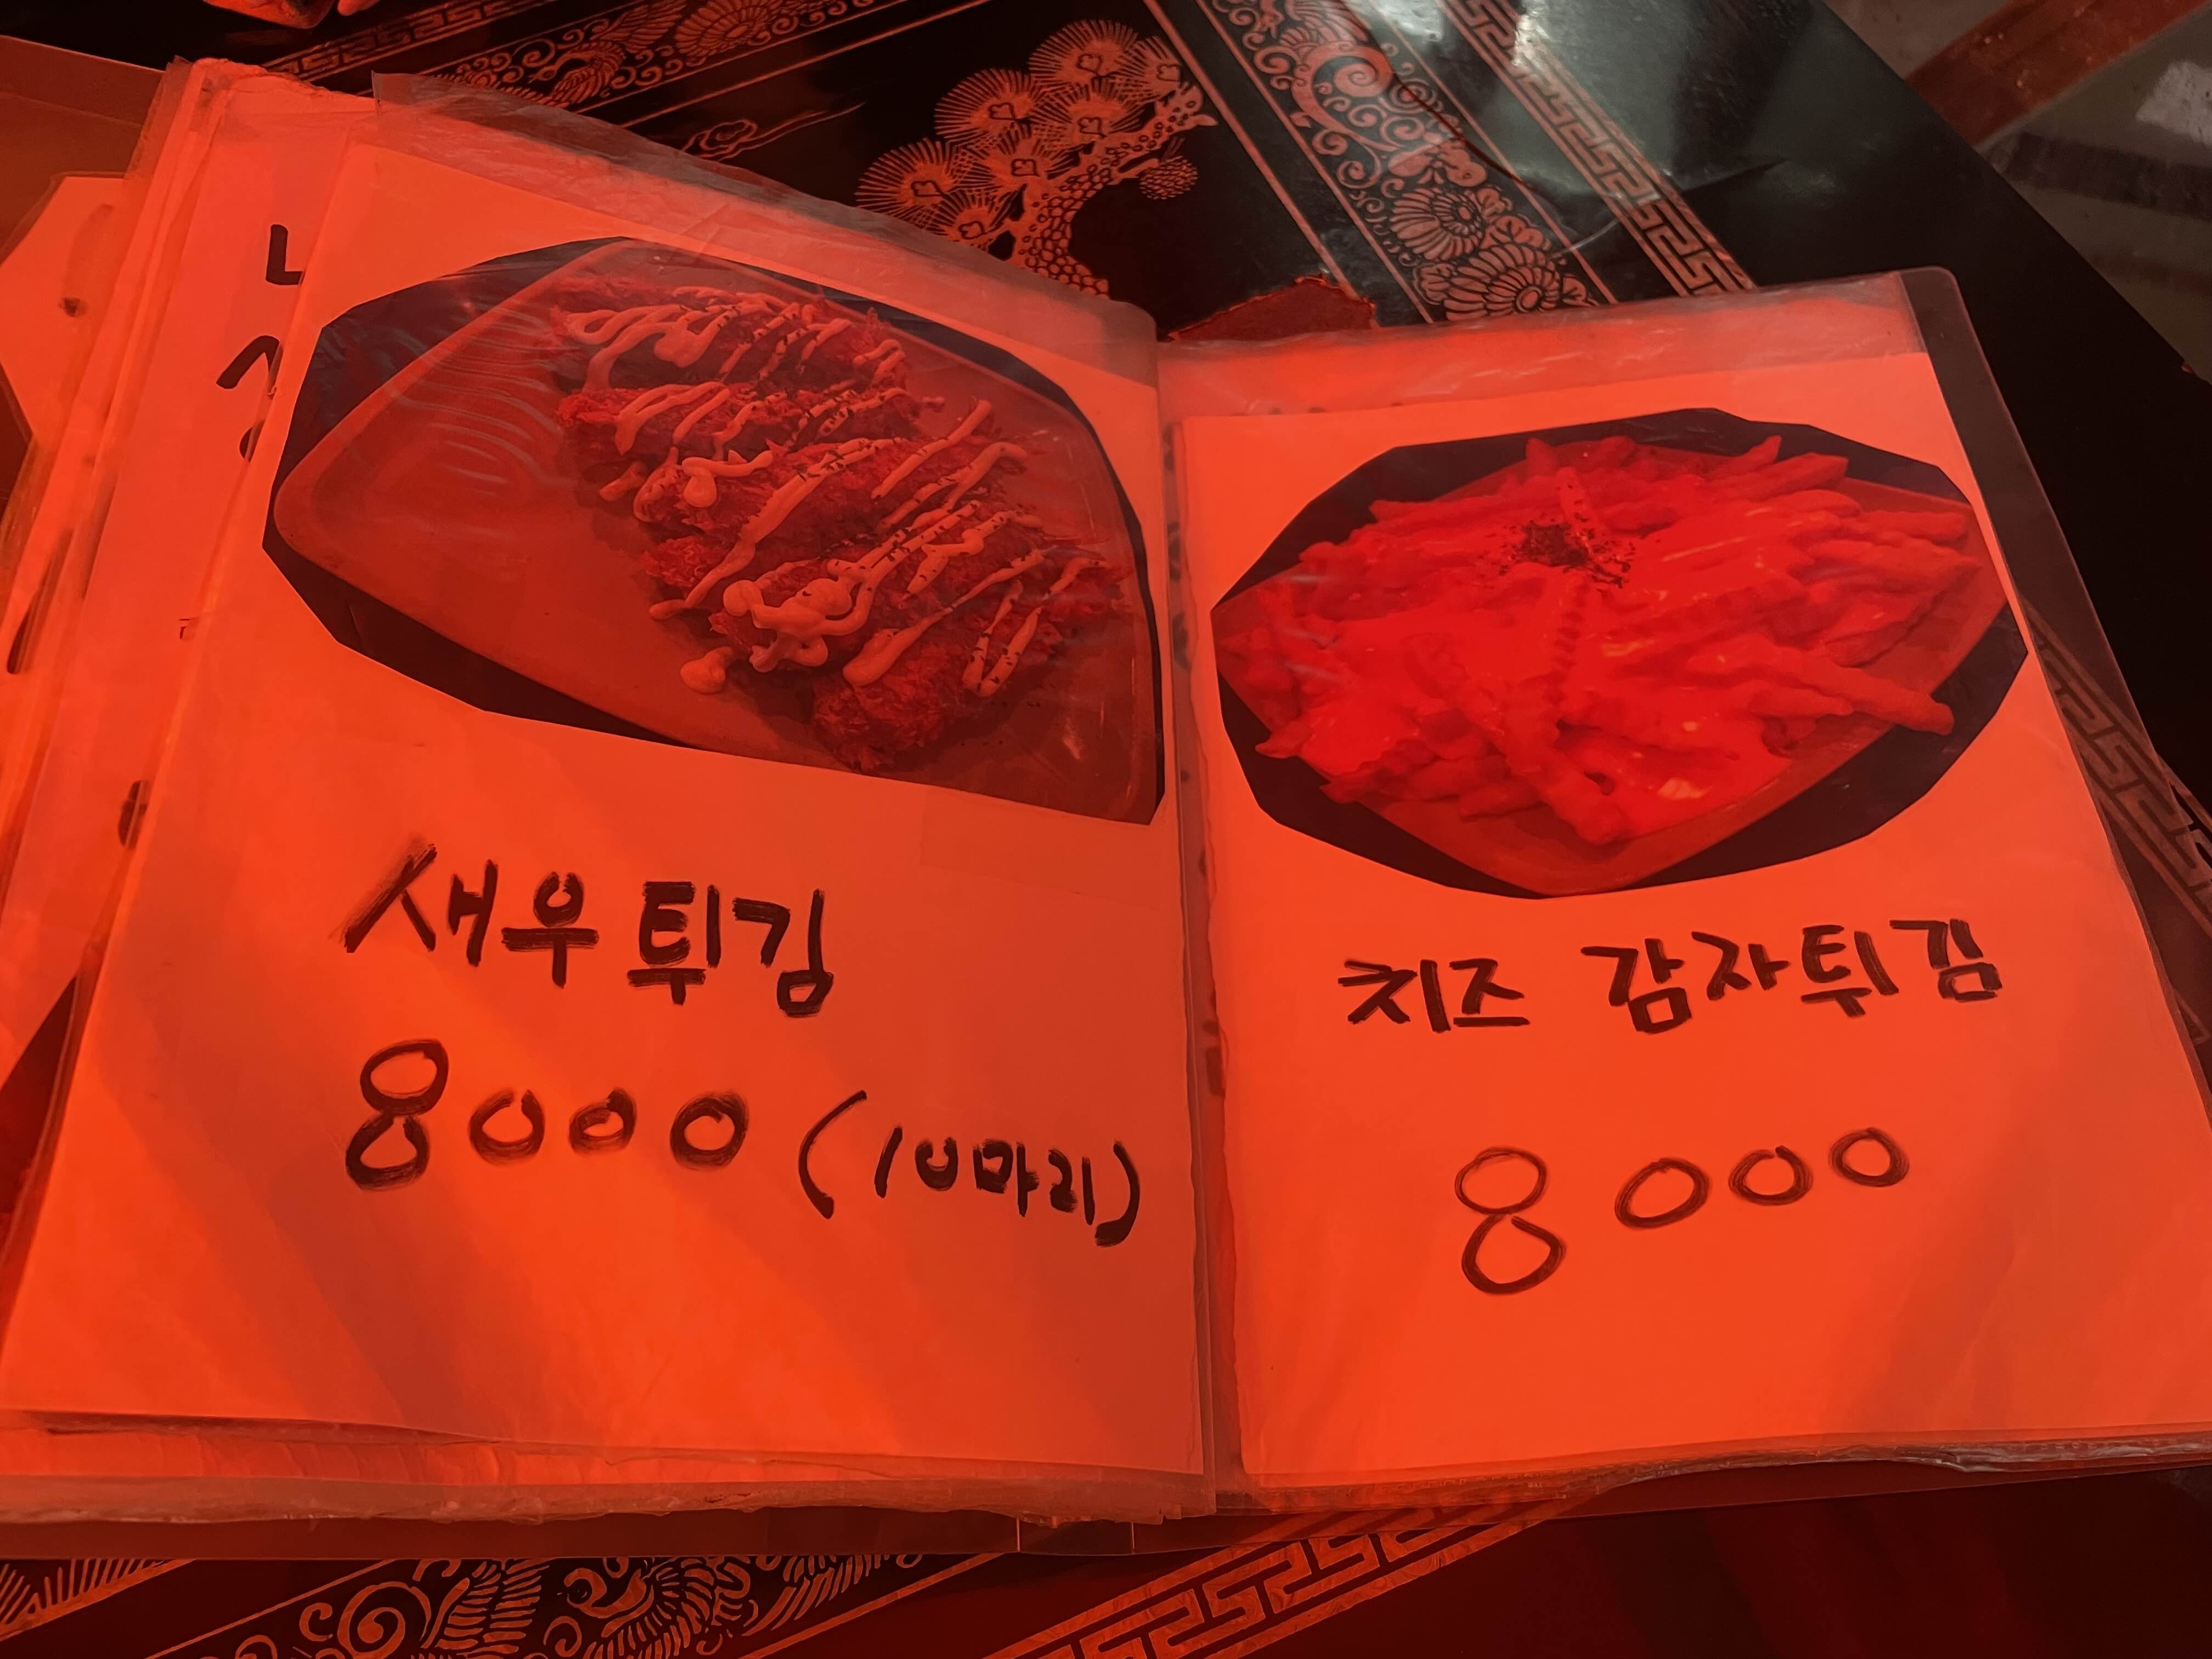 새우튀김
8000 (10마리)
치즈 감자튀김
8000